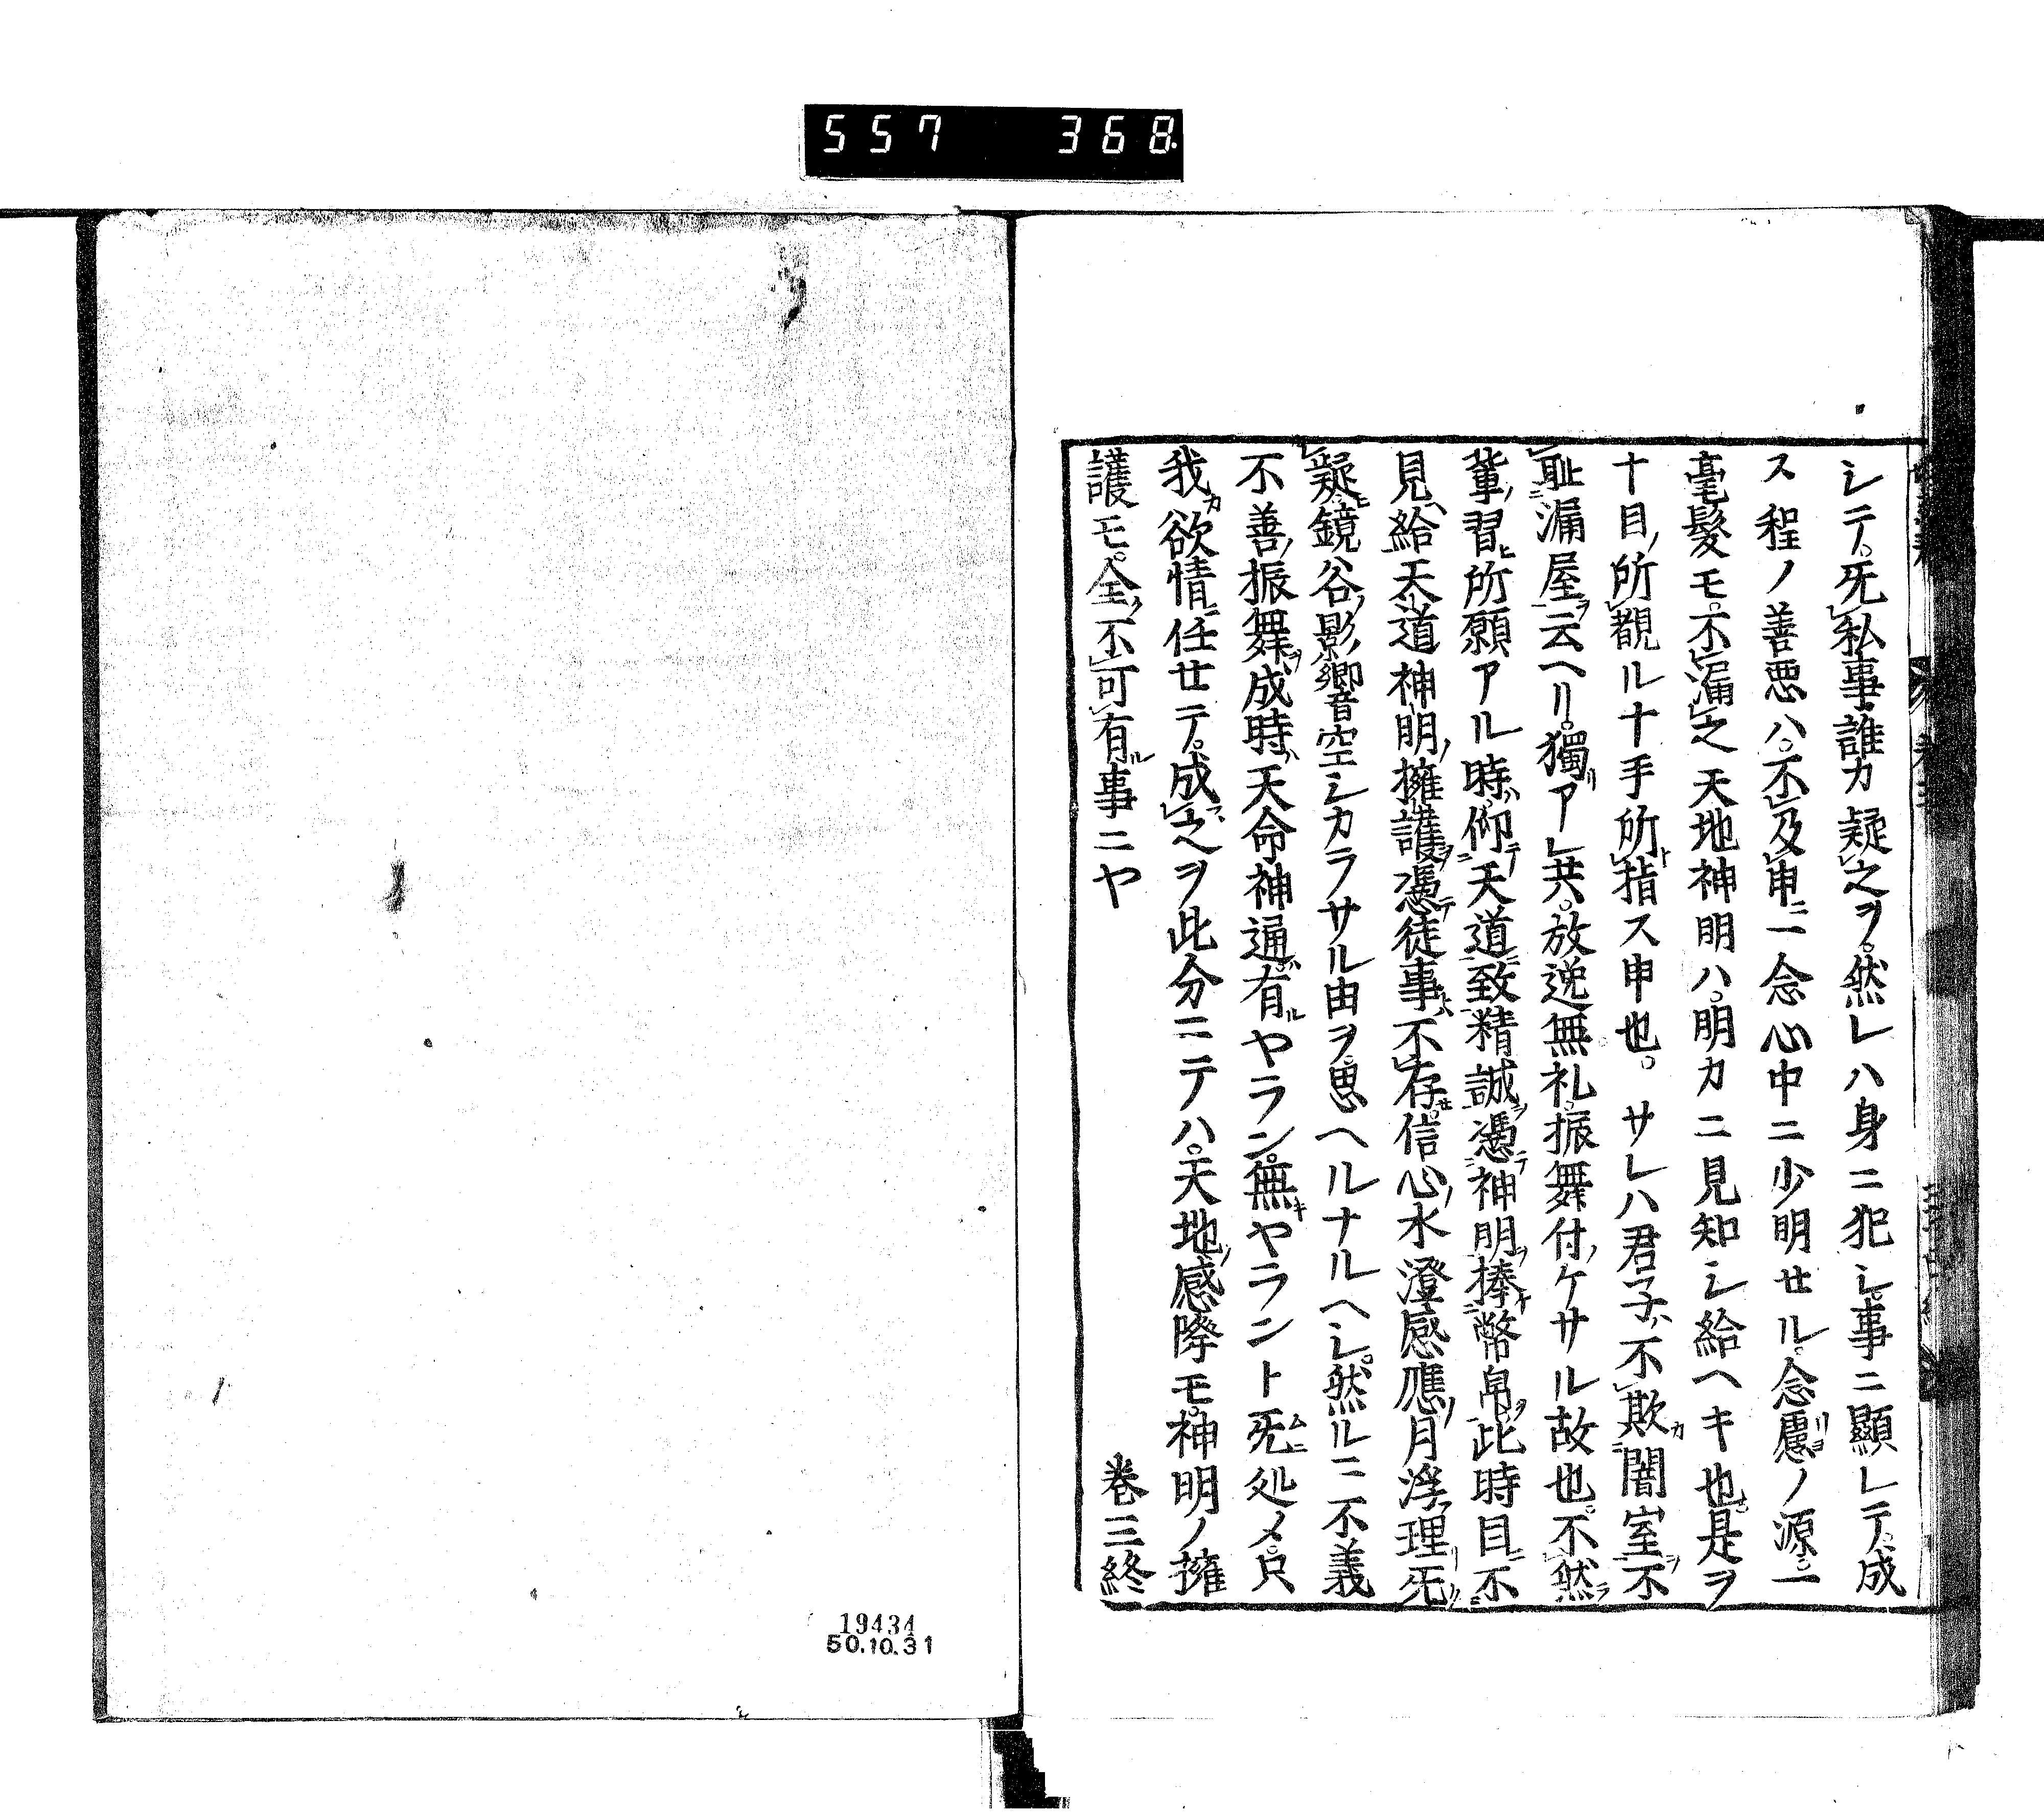 557 368
シテ。旡私事誰カ疑之ヲ。然レハ身ニ犯シ。事ニ顯レテ。成
ス程ノ善悪ハ。不及申ニ一念心中ニ少明セル。念慮ノ源。一
毫髪モ。不漏之天地神明ハ。明カニ見知シ給ヘキ也。是ヲ
十目ノ所覩ル十手所指ス申也。サレハ君子ハ不欺カ闇室ヲ不
耻漏屋ヲ云ヘリ。獨リアレ共。放逸無礼。振舞付ノケサル故也。不然ラ
輩ノ習ヒ所願アル時ハ仰テ天道ニ致精誠ヲ憑テ神明ヲ捧キ幣帛ヲ此時目ニ不
見ヘ給天道神明ノ擁護ヲ憑テ徒事ト不存セ。信心ノ水澄感應ノ月浮フ理リ旡
疑ヒ鏡ハ谷ノ影ノ響空シカラサル由ヲ。思ヘルナルヘシ。然ルニ不義
不善ノ振舞ヲ成時ハ天命神通ハ有ルヤラン。無キヤラント旡ムニ処メ。只
我カ欲情ニ任セテ。成之ヲ此分ニテハ。天地ノ感降モ。神明ノ擁
護モ。全ク不可有ル事ニヤ
巻三終
19434
50.10.31